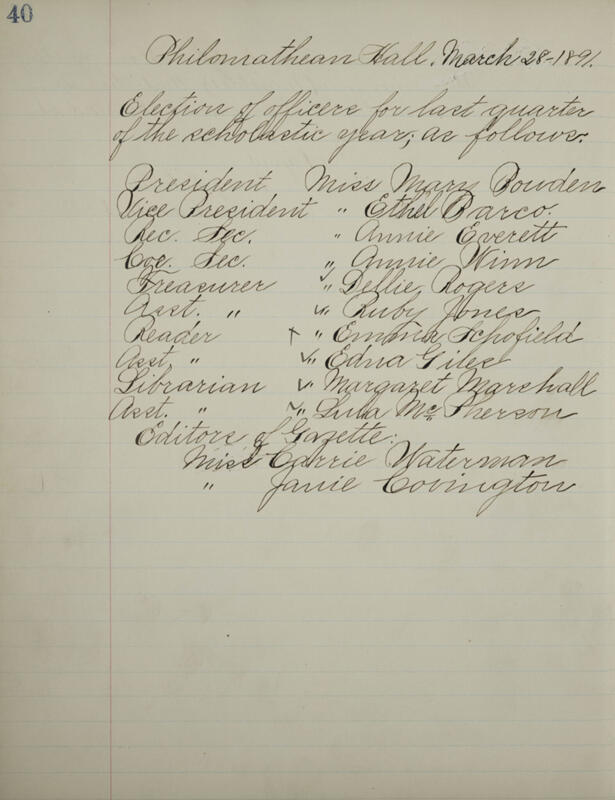 40
Philomathean Hall, March 28-1891.
Election of officers for last quarter
of the scholastic year; as follows:
President Miss Mary Bowden
Vice President " Ethel Barco.
Rec. Sec. " Annie Everett
Cor. Sec. " Annie Winn
Treasurer " Dellie Rogers
Asst. " " Ruby Jones
Reader + " Emma Schofield
Asst. " " Edna Giles
Librarian " Margaret Marshall
Asst. " " Lula McPherson
Editors of Gazette:
Miss Carrie Waterman
" Janie Covington